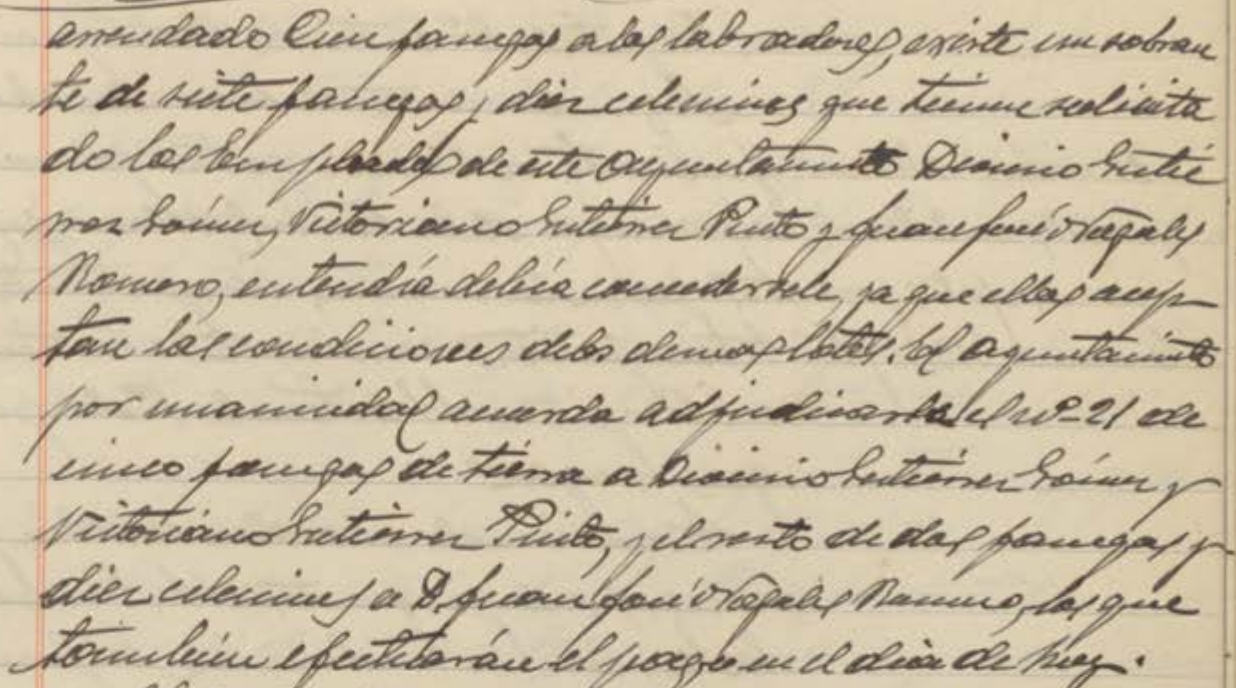 arrendado Cien fanegas a los labradores, existe un sobran
te de siete fanegas y diez celemines que tienen solicita
do los Empleados de este Ayuntamiento Dionisio Gutié
rrez Gómez, Victoriano Gutiérrez Pinto y Juan José Nogales
Romero, entendía debía concedersele, ya que ellos acep
tan las condiciones de los demas lotes. El Ayuntamiento
por unanimidad acuerda adjudicarle el nº 21 de
cinco fanegas de tierra a Dionisio Gutiérrez Gómez y
Victoriano Gutiérrez Pinto, y el resto de dos fanegas y
diez celemines a D. Juan José Nogales Romero, los que
también efectuarán el pago en el dia de hoy.